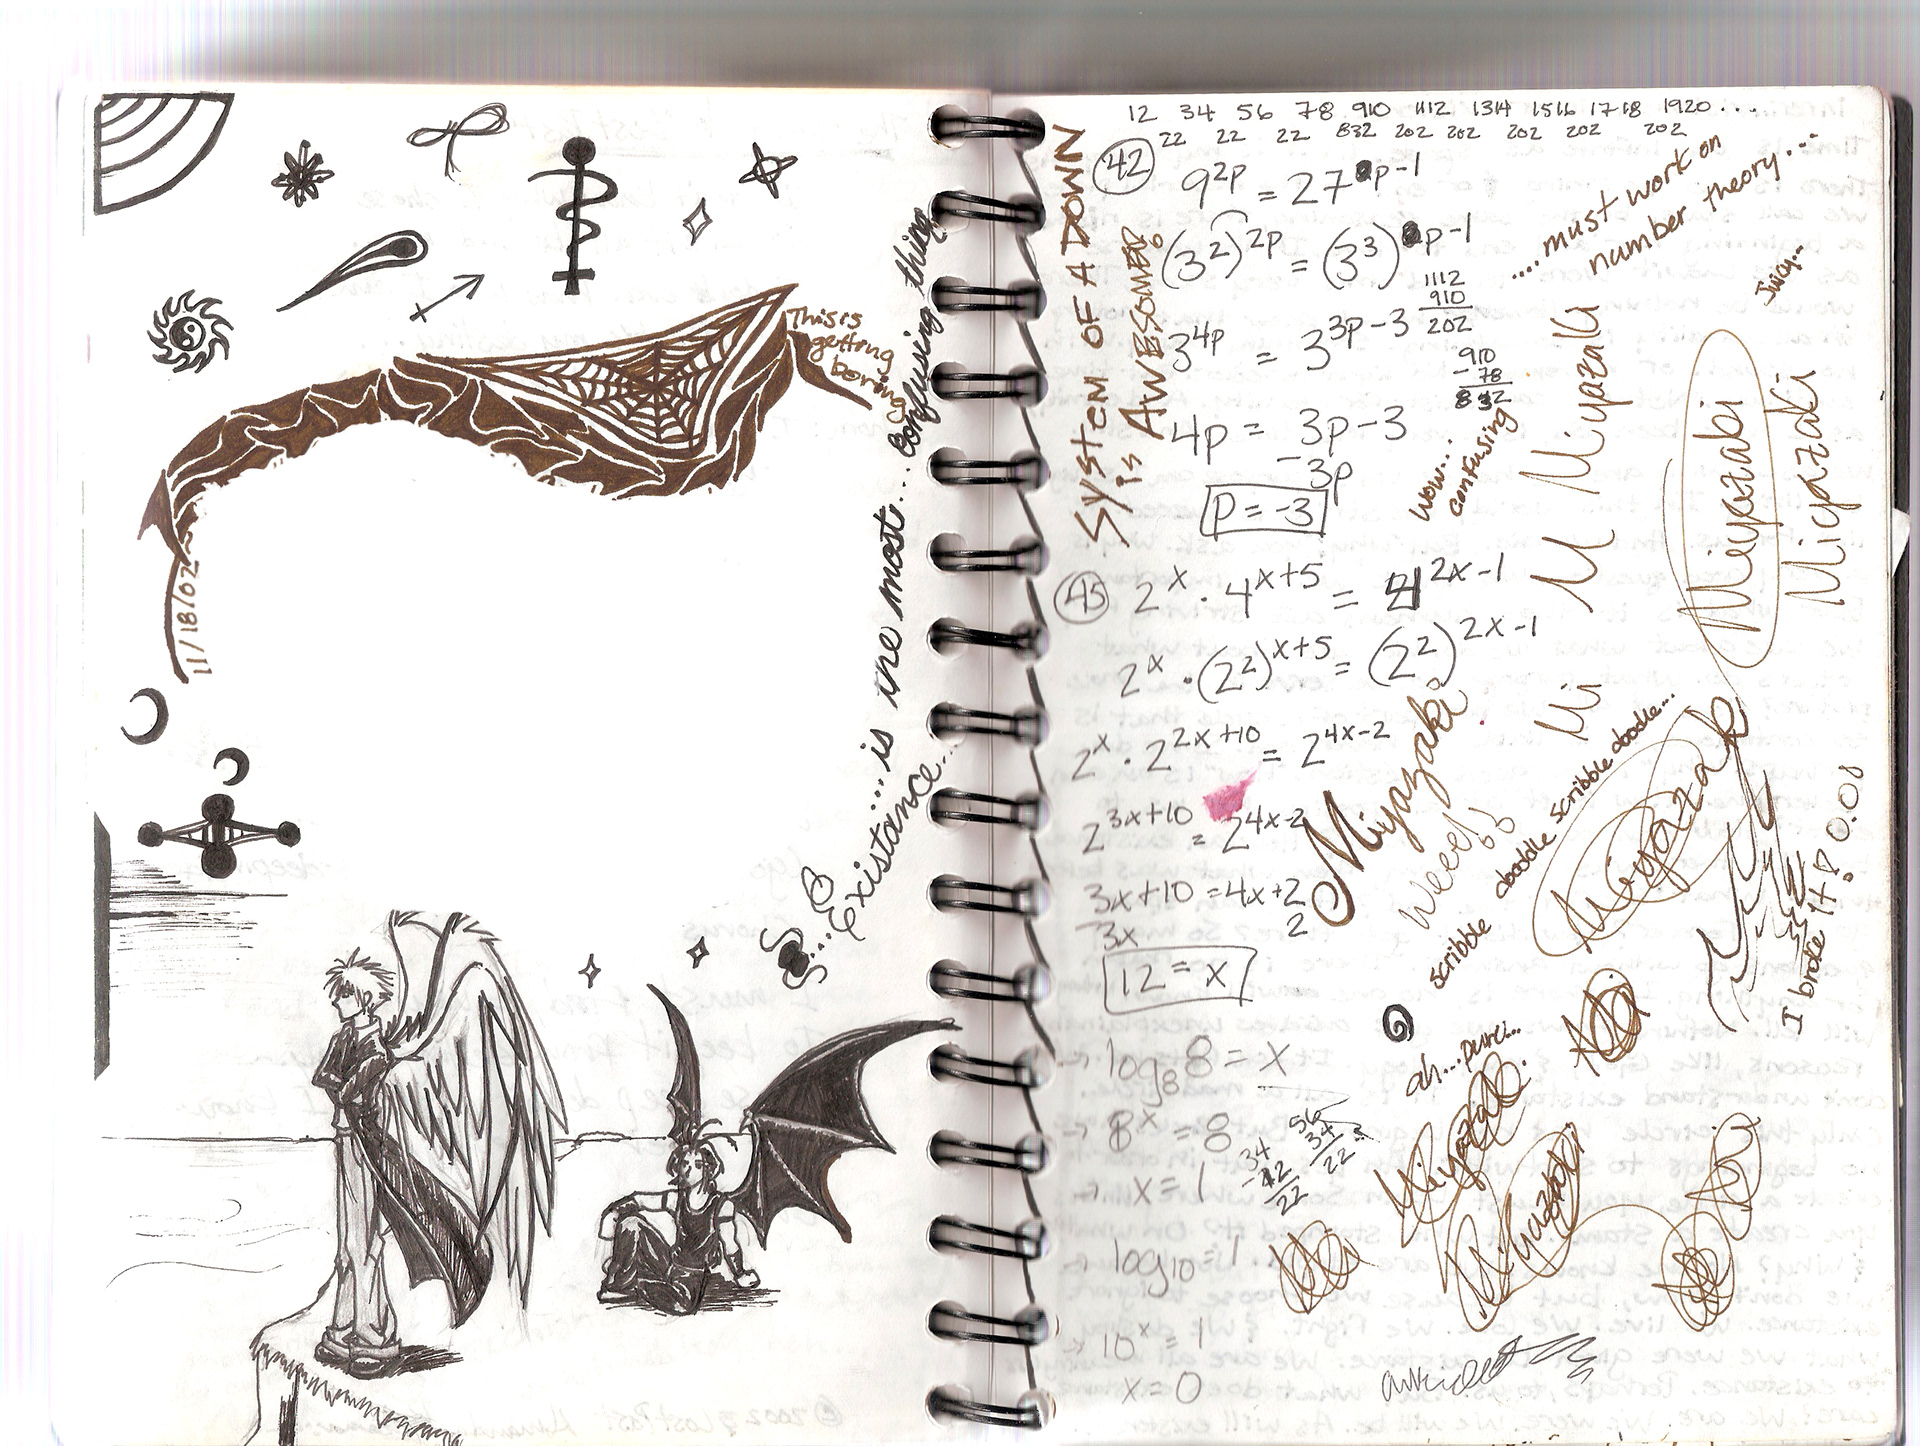 This is
getting
boring
11/18/02
...Existance...
...is the most... confusing thing
12 34 56 78 910 1112 1314 1516 1718 1920 ...
22 22 22 832 202 202 202 202 202
System OF A DOWN
is AWESOME!
42 9^2p = 27^p-1
(3^2)^2p = (3^3)^p-1
3^4p = 3^3p-3
4p = 3p-3
-3p
p = -3
1112
910
202
910
-78
832
....must work on
number theory...
Juicy...
wow...
confusing
45 2^x · 4^x+5 = 4^2x-1
2^x · (2^2)^x+5 = (2^2)^2x-1
2^x · 2^2x+10 = 2^4x-2
2^3x+10 = 2^4x-2
3x+10 = 4x+2
3x 2
12 = x
log8 8 = x
8^x = 8
x = 1
log10 = 1
10^x = 1
x = 0
34
-12
22
56
34
22
M Miyazaki
Miyazaki
Miyazaki
Mi
Miyazaki
Weee!
scribble doodle scribble doodle...
Miyaza
I broke it? 0.0;
Miyazaki
Miyazaki